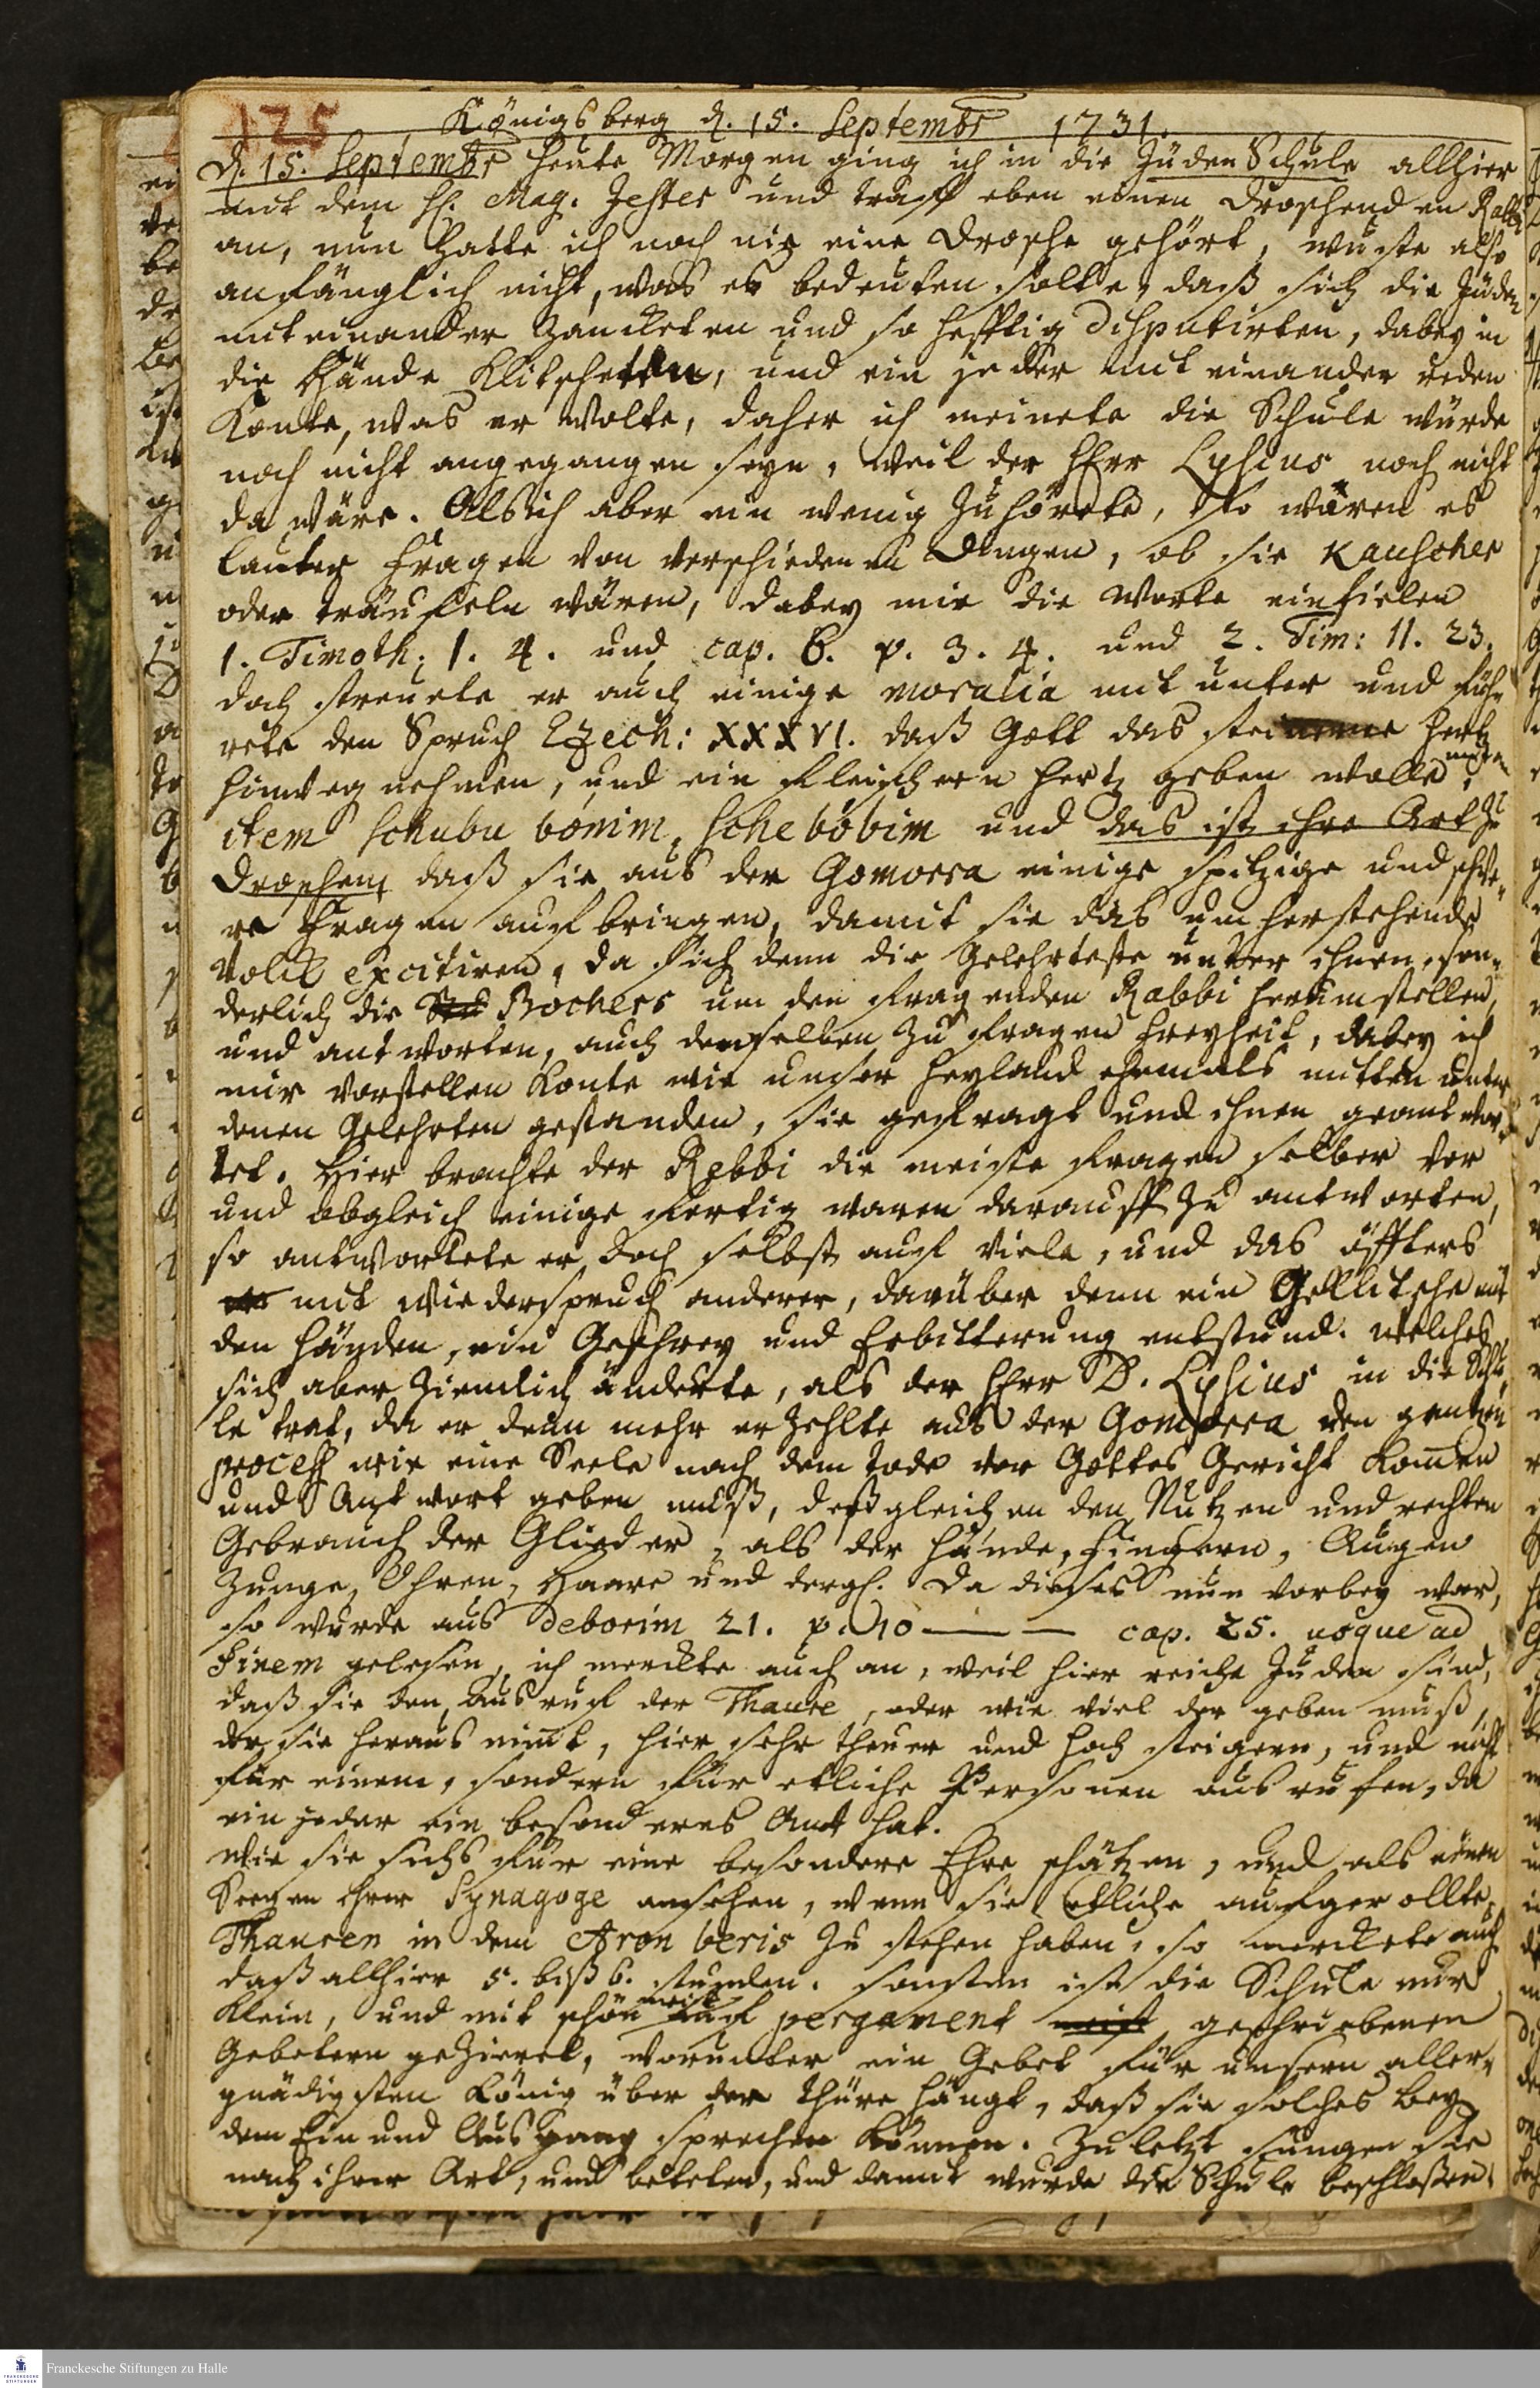 125
Königsberg d. 15. Septembr 1731.
d. 15. Septembr heute Morgen ging ich in die Juden Schule allhier
mit dem H. Mag. Jester und traff eben einen Droschenden Rabbi
an, nun hatte ich noch nie eine Drosche gehört, wuste also
anfänglich nicht, was es bedeuten solte, daß sich die Jüden
miteinander zanckten und so hefftig disputirten, dabey in
die Hände klitschetten, und ein jeder mit einander reden
konte, was er wolte, daher ich meinete die Schule würde
noch nicht angegangen seyn, weil der HErr Lysius noch nicht
da wäre. Als ich aber ein wenig zuhörete, so waren es
lauter Fragen von verschiedenen Dingen, ob sie kauscher
oder träufeln wären, dabey mir die Worte einfielen
1. Timoth: 1. 4. und cap. 6. v. 3. 4. und 2. Tim: 11. 23.
doch streuete er auch einige moralia mit unter und füh¬
rete den Spruch Ezech: XXXVI. daß Gott das steinerne Hertz
hinweg nehmen, und ein fleischern Hertz geben wolle,
item schubu bonim, schebobim und das ist ihre Art zu
Droschen, daß sie aus der Gomorra einige spitzige und schwe¬
re Fragen aufbringen, damit sie das umherstehende
Volck excitiren, da sich denn die Gelehrteste unter ihnen, son¬
derlich die Bochers um den fragenden Rabbi herumstellen,
und antworten, auch denselben zu fragen Freyheit, dabey ich
mir vorstellen konte wie unser Heyland ehemals mitten unter
denen Gelehrten gestanden, sie gefragt und ihnen geantwor¬
tet. Hier brachte der Rebbi die meiste Fragen selber vor
und obgleich einige fertig waren darauff zu antworten,
so antwortete er doch selbst auf viele, und das öffters
mit Wiederspruch anderer, darüber denn ein Geklitsche mit
den Händen, ein Geschrey und Erbitterung entstund. welches
sich aber ziemlich änderte, als der HErr D. Lysius in die Schu¬
le trat, da er denn mehr erzehlte aus der Gomorra den gantzen
process wie eine Seele nach dem Tode vor Gottes Gericht komen
und Antwort geben muß, deßgleichen den Nutzen und rechten
Gebrauch der Glieder, als der Hände, Fingern, Augen
Zunge, Ohren, Haare und dergl. Da dieses nun vorbey war,
so wurde aus Deborim 21. v. 10 — — cap. 25. usque ad
Finem gelesen, ich merckte auch an, weil hier reiche Juden sind,
daß sie den Ausruf der Thaure, oder wie viel der geben muß,
der sie heraus nimt, hier sehr theuer und hoch steigern, und nicht
für einem, sondern für etliche Personen ausrufen, da
ein jeder ein besonderes Amt hat.
Wie sie sichs für eine besondere Ehre schätzen, und als einen
Seegen ihrer Synagoge ansehen, wenn sie etliche aufgerollte
Thauren in dem Aron beris zu stehen haben, so merckete auch
daß allhier 5. biß 6. stunden. sonsten ist die Schule nur
klein, und mit schön meist auf pergament meist geschriebenen
Gebetern gezieret, worunter ein Gebet für unsern aller¬
gnädigsten König über der Thüre hängt, daß sie solches bey
dem Ein und Ausgang sprechen können. Zuletzt sungen sie
nach ihrer Art, und beteten, und damit wurde die Schule beschloßen.
Franckesche Stiftungen zu Halle